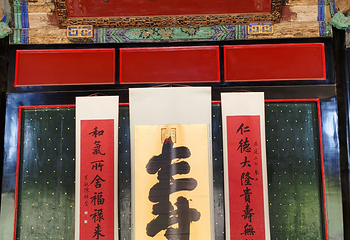 仁德大隆貴壽無
壽
和氣所舍福祿來